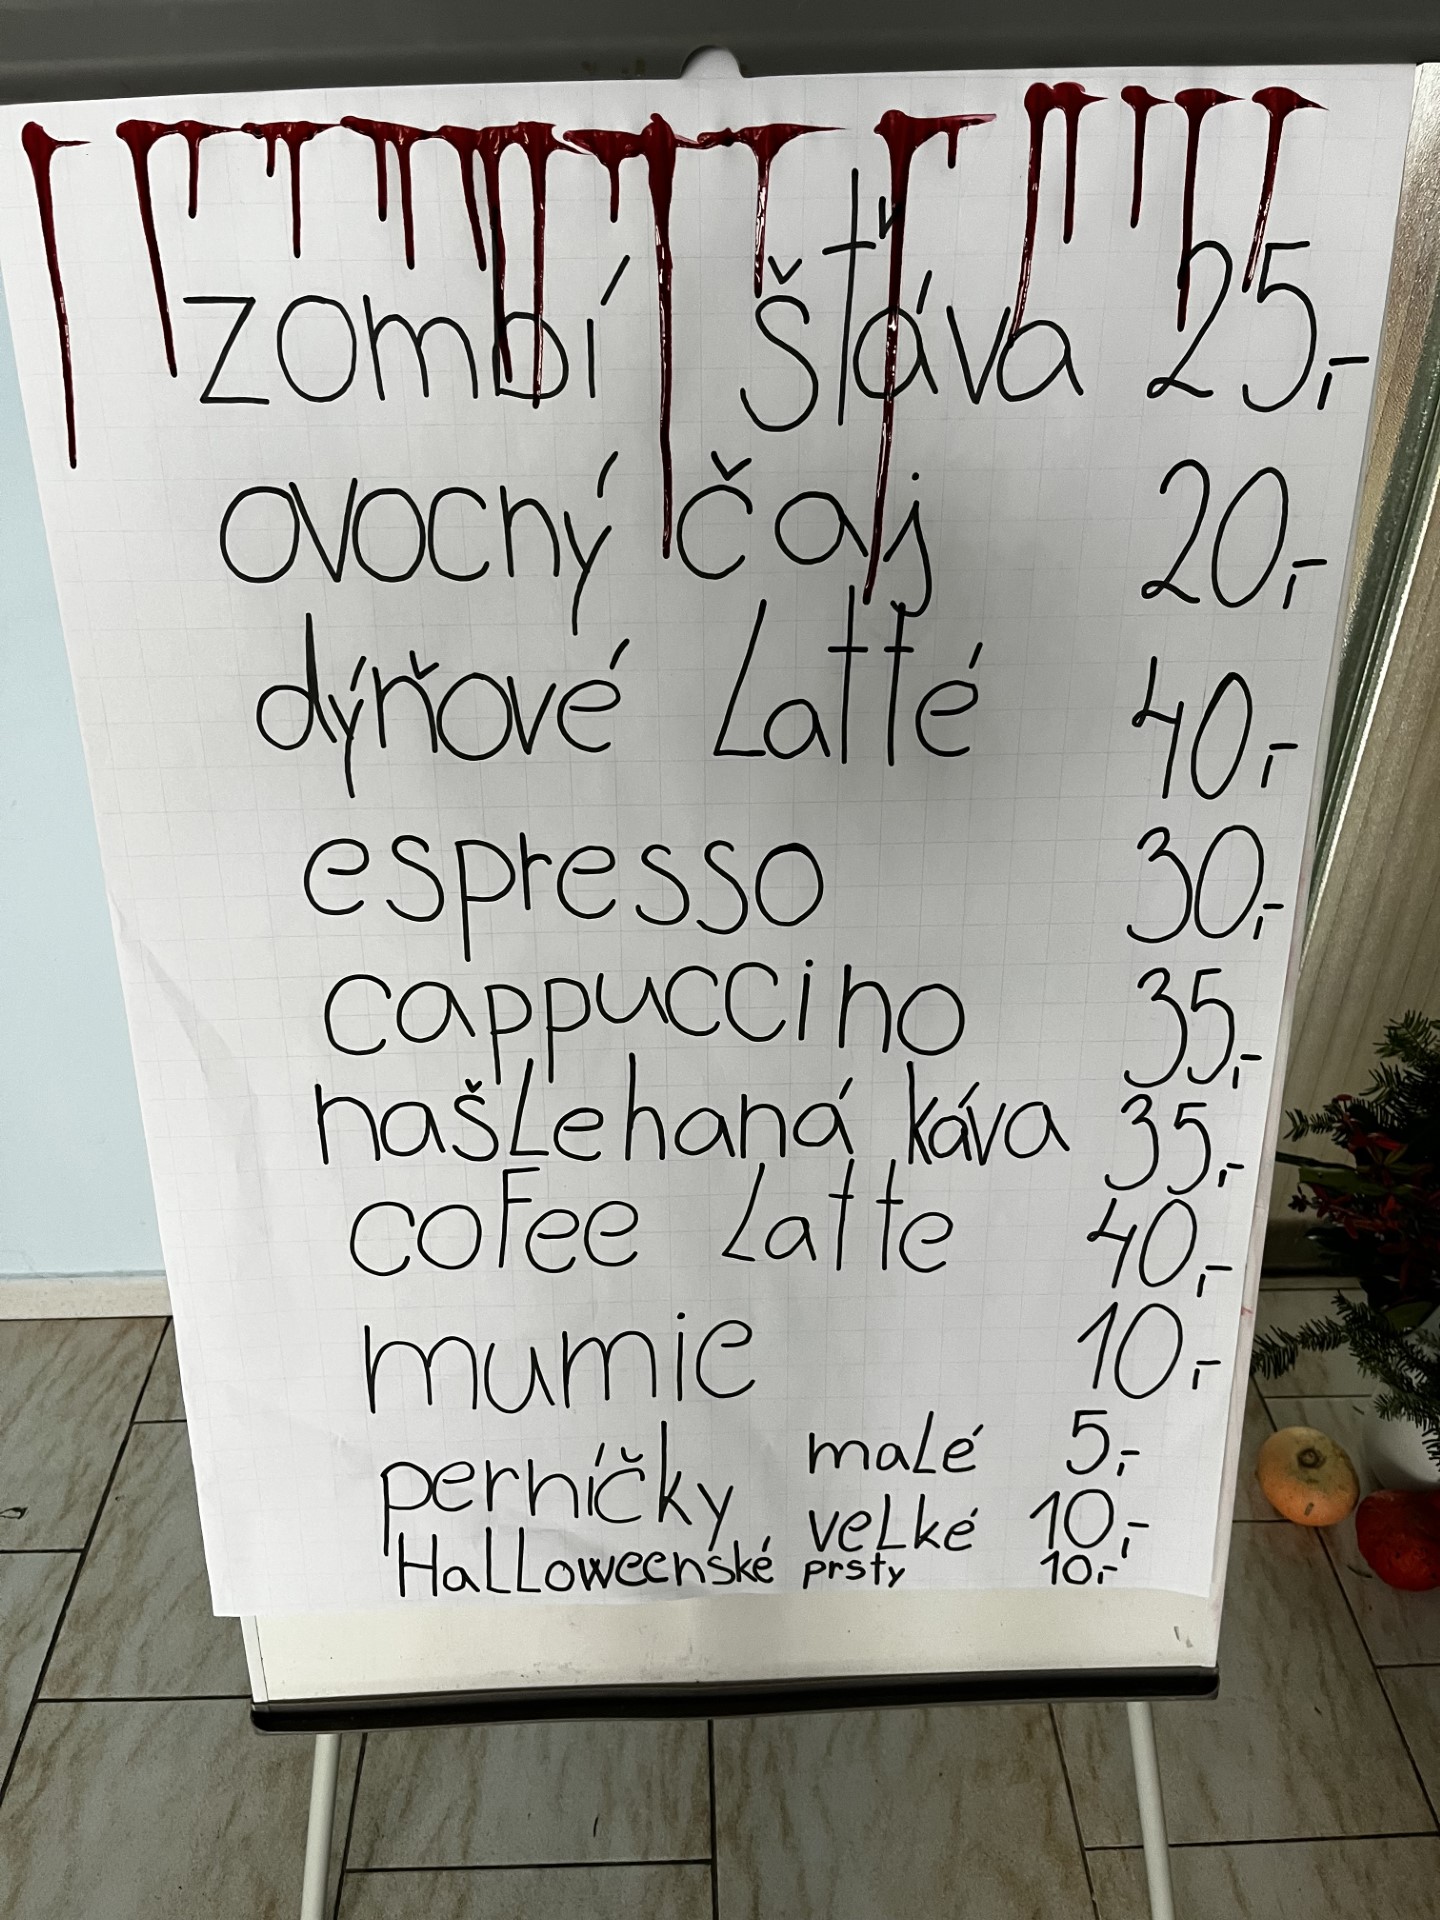 zombí šťáva 25,-
ovocný čaj 20,-
dýňové Latté 40,-
espresso 30,-
cappuccino 35,-
našlehaná káva 35,-
cofee Latte 40,-
mumie 10,-
perníčky malé 5,-
velké 10,-
Halloweenské prsty 10,-